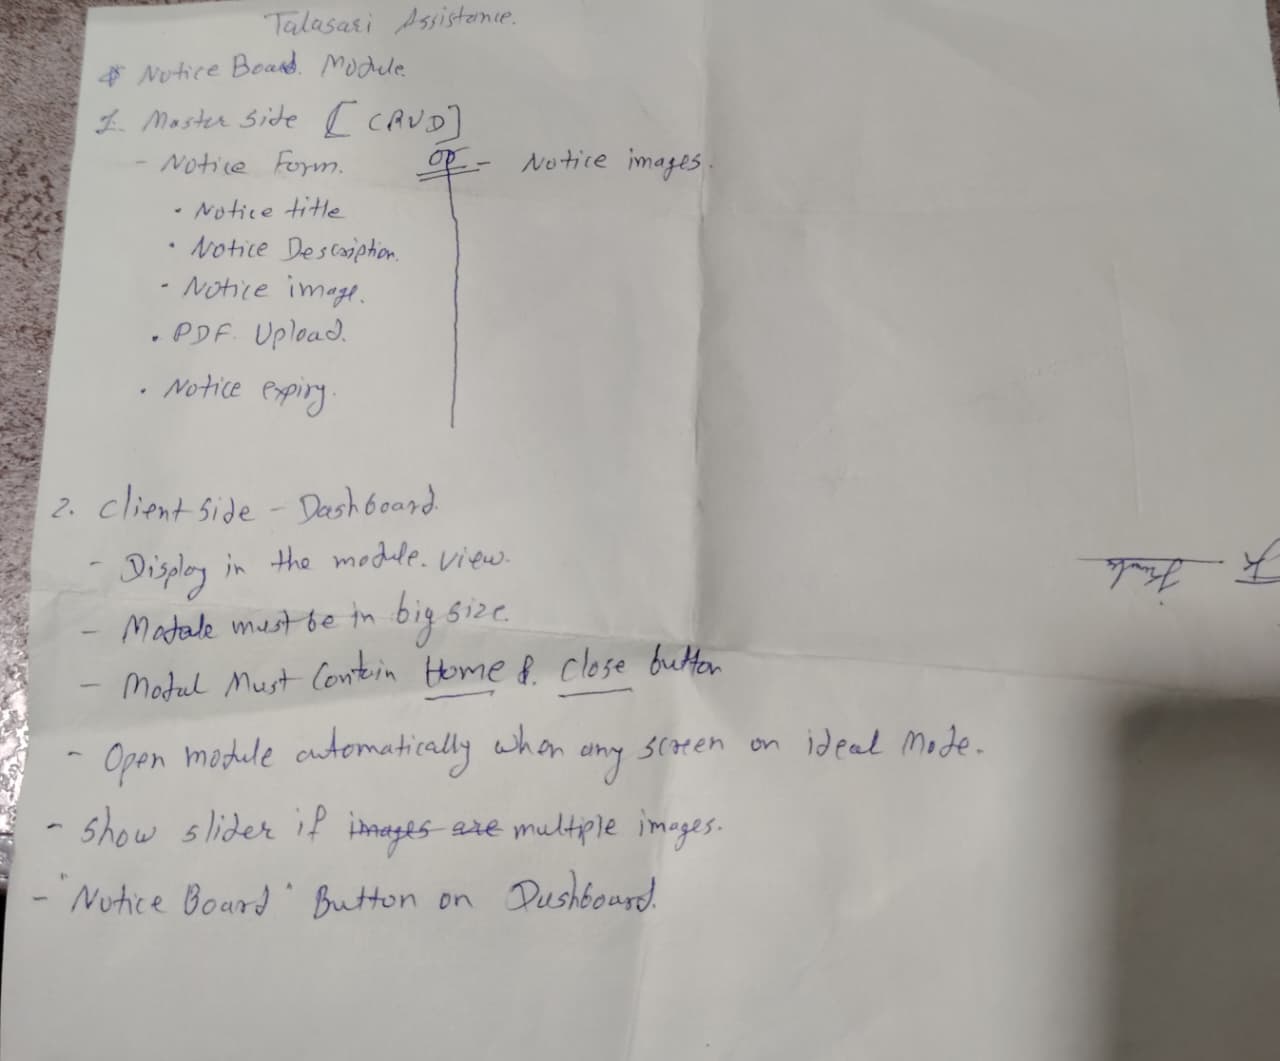 Talasari Assistance.
* Notice Board. Module.
1. Master Side [CRUD]
- Notice Form.
OR - Notice images.
• Notice title
• Notice Description.
- Notice image.
• PDF. Upload.
• Notice expiry.
2. Client Side - Dashboard.
- Display in the module. view.
- Modale must be in big size.
- Modal Must Contain Home & Close button
- Open module automatically when any screen on ideal Mode.
- Show slider if images are multiple images.
- "Notice Board" Button on Dashboard.